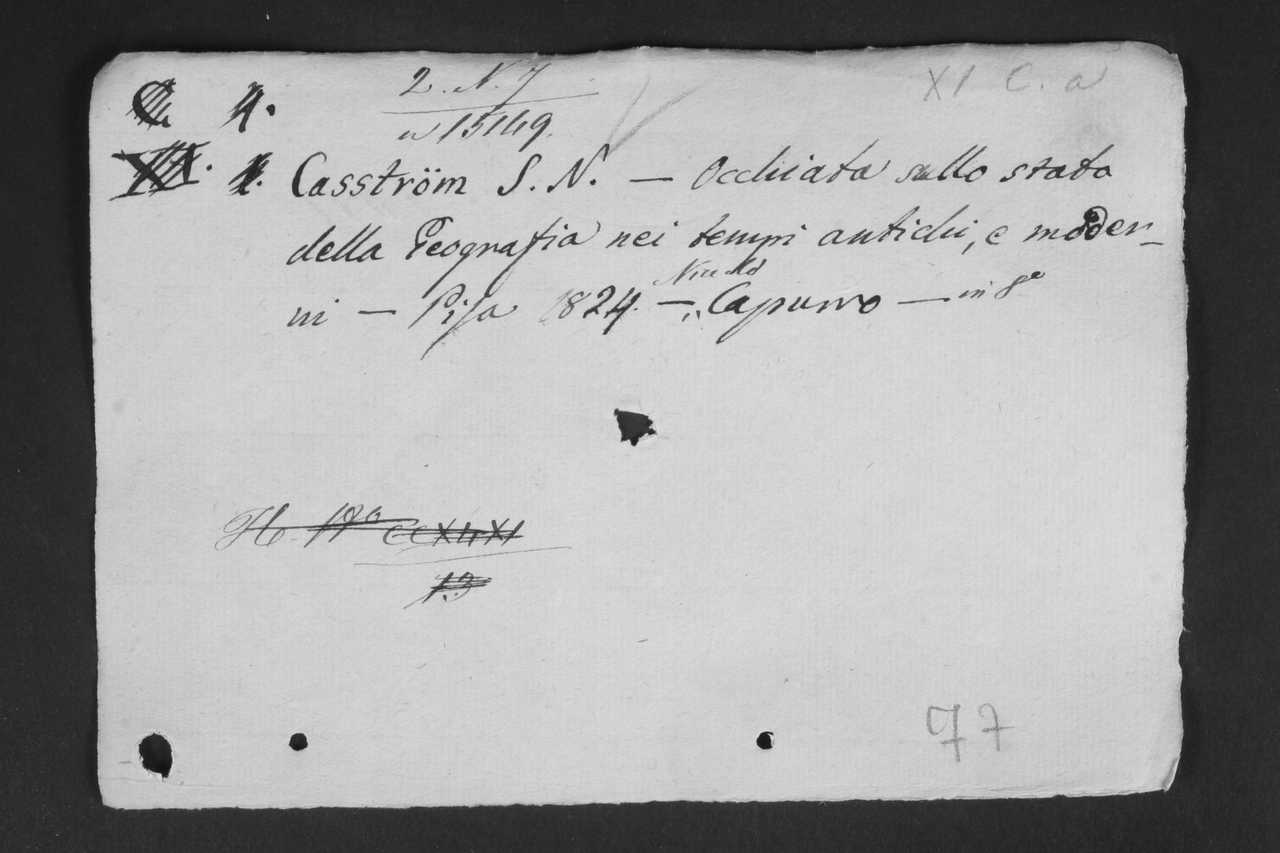 C. 4. 2. N. 7 XI C. a
a 15149.
XI. 1. Casström S. N. — Occhiata sullo stato
della Geografia nei tempi antichi, e moder-
ni — Pisa 1824. — Capurro — in 8°
13
77